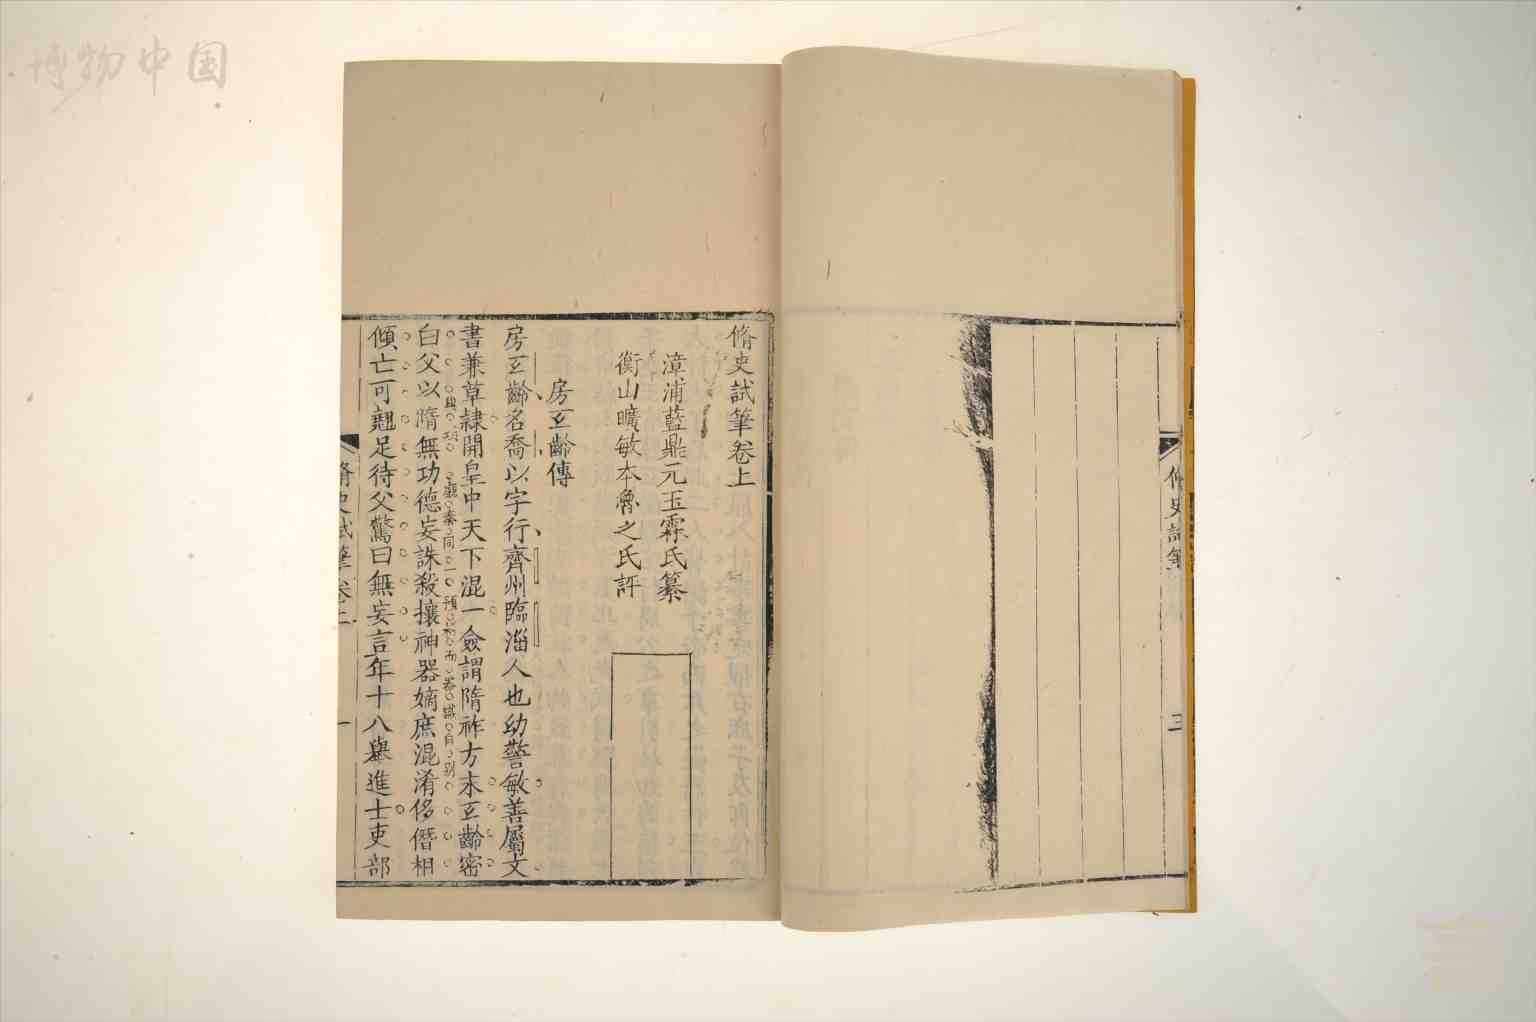 博物中国
脩史試筆
三
脩史試筆卷上
漳浦藍鼎元玉霖氏纂
衡山曠敏本魯之氏評
房玄齡傳
房玄齡名喬以字行齊州臨淄人也幼警敏善屬文
書兼草隷開皇中天下混一僉謂隋祚方未玄齡密
白父以隋無功德妄誅殺攘神器嫡庶混淆侈僭相
傾亡可翹足待父驚曰無妄言年十八舉進士吏部
脩史試筆卷上
一